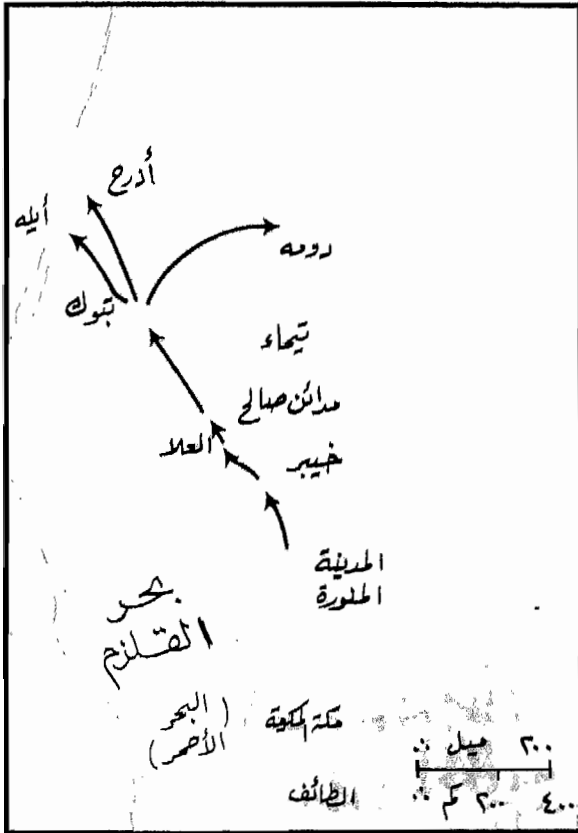 أذرح
أيله
دومه
تبوك
تيماء
مدائن صالح
العلا
خيبر
المدينة
المنورة
بحر
القلزم
(البحر
الأحمر)
مكة المكرمة
الطائف
٢٠٠ ميل ٠٠
٤٠٠ ٢٠٠ كم ٠٠